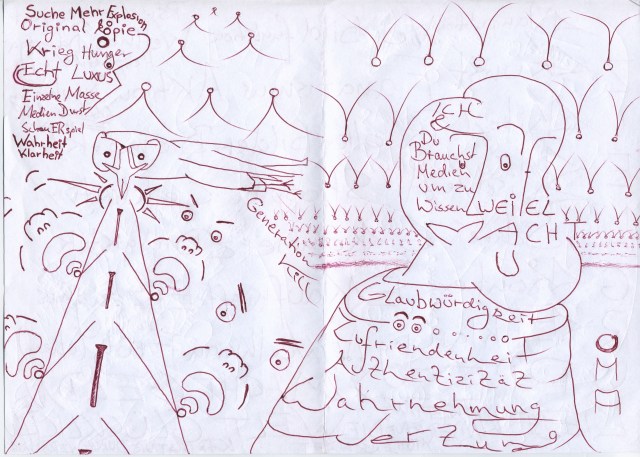 Suche Mehr Explosion
Original Kopie
Krieg Hunger
Echt Luxus
Einzelne Masse
Medien Dust
SchauERspiel
Wahrheit
Klarheit
Generation
Kill
ICH
&
Du
Brauchst
Medien
um zu
Wissen
ZWEIFEL
ACHT
Glaubwürdigkeit
Zufriendenheit
Authentizität
Wahrnehmung
VerZung
O
M
A